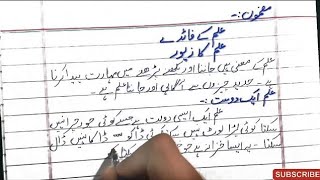 مضمون:-
علم کے فائدے
علم کا زیور
علم کے معنی ہیں جاننا اور لکھنے پڑھنے میں مہارت پیدا کرنا
ہے۔ جدید چیزوں سے آگاہی اور جاننا علم ہے۔
علم ایک دولت:-
علم ایک ایسی دولت ہے جسے کوئی چور چرا نہیں
سکتا کوئی لوٹ نہیں سکتا کوئی ڈاکو ڈاکا نہیں ڈال
سکتا۔ یہ ایسا خزانہ ہے جو
SUBSCRIBE